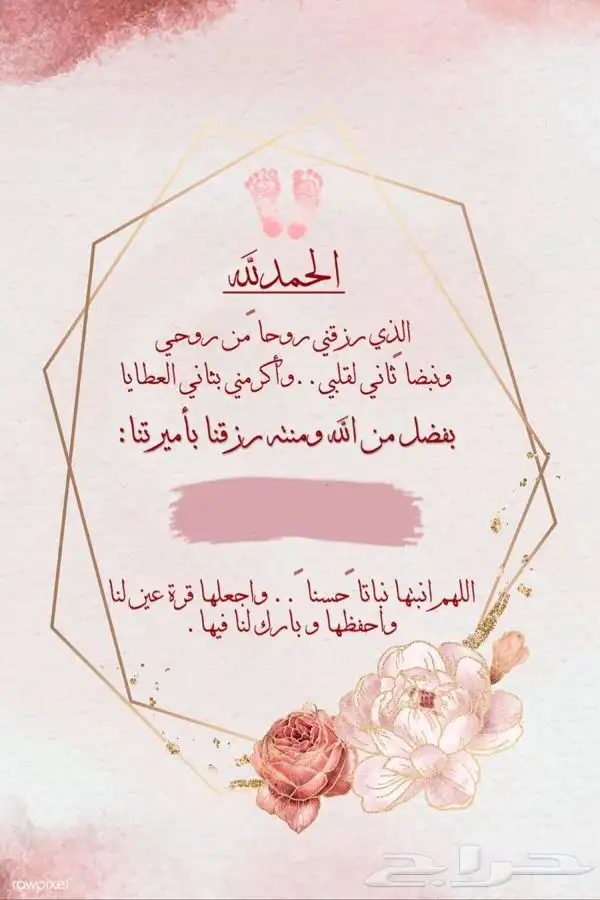 الحمدلله
الذي رزقني روحاً من روحي
ونبضا ًثاني لقلبي . . وأكرمني بثاني العطايا
بفضل من الله ومنته رزقنا بأميرتنا :
اللهم انبتها نباتا ًحسنا ً . . واجعلها قرة عين لنا
واحفظها وبارك لنا فيها .
rawpixel
حراج